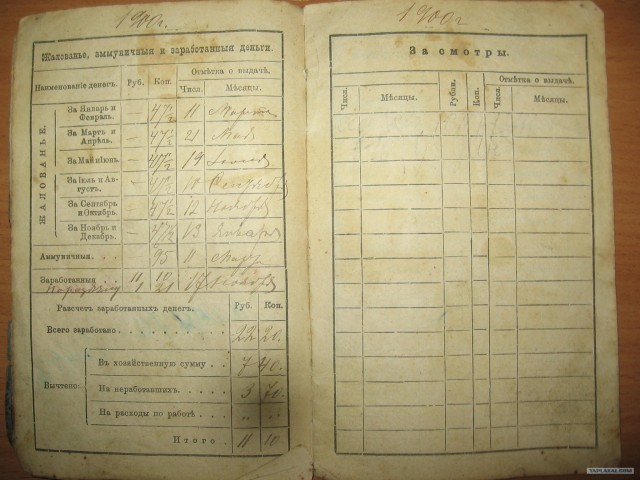 1900г.
Жалованье, аммуничныя и заработанныя деньги.
Наименованіе денегъ. Руб. Коп. Отмѣтка о выдачѣ.
Числ. Мѣсяцы.
ЖАЛОВАНЬЕ.
За Январь и Февраль. — 47½ 11 Марта
За Мартъ и Апрѣль. — 47½ 21 Мая
За Май и Іюнь. — 47½ 19
За Іюль и Августъ. — 47½ 10 Сентября
За Сентябрь и Октябрь. — 47½ 12 Ноября
За Ноябрь и Декабрь. — 47½ 13 Января
Аммуничныя. . . — 95 11 Марта
Заработанныя 11 10 17
1 21
Разсчетъ заработанныхъ денегъ. Руб. Коп.
Всего заработано . . . . . . . . 22 20.
Вычтено:
Въ хозяйственную сумму . . . 7 40.
На неработавшихъ. . . . . 3 70.
На расходы по работѣ . . . „ „
Итого . . 11 10
1900г
За смотры.
Числ. Мѣсяцы. Рубли. Коп. Отмѣтка о выдачѣ.
Числ. Мѣсяцы.